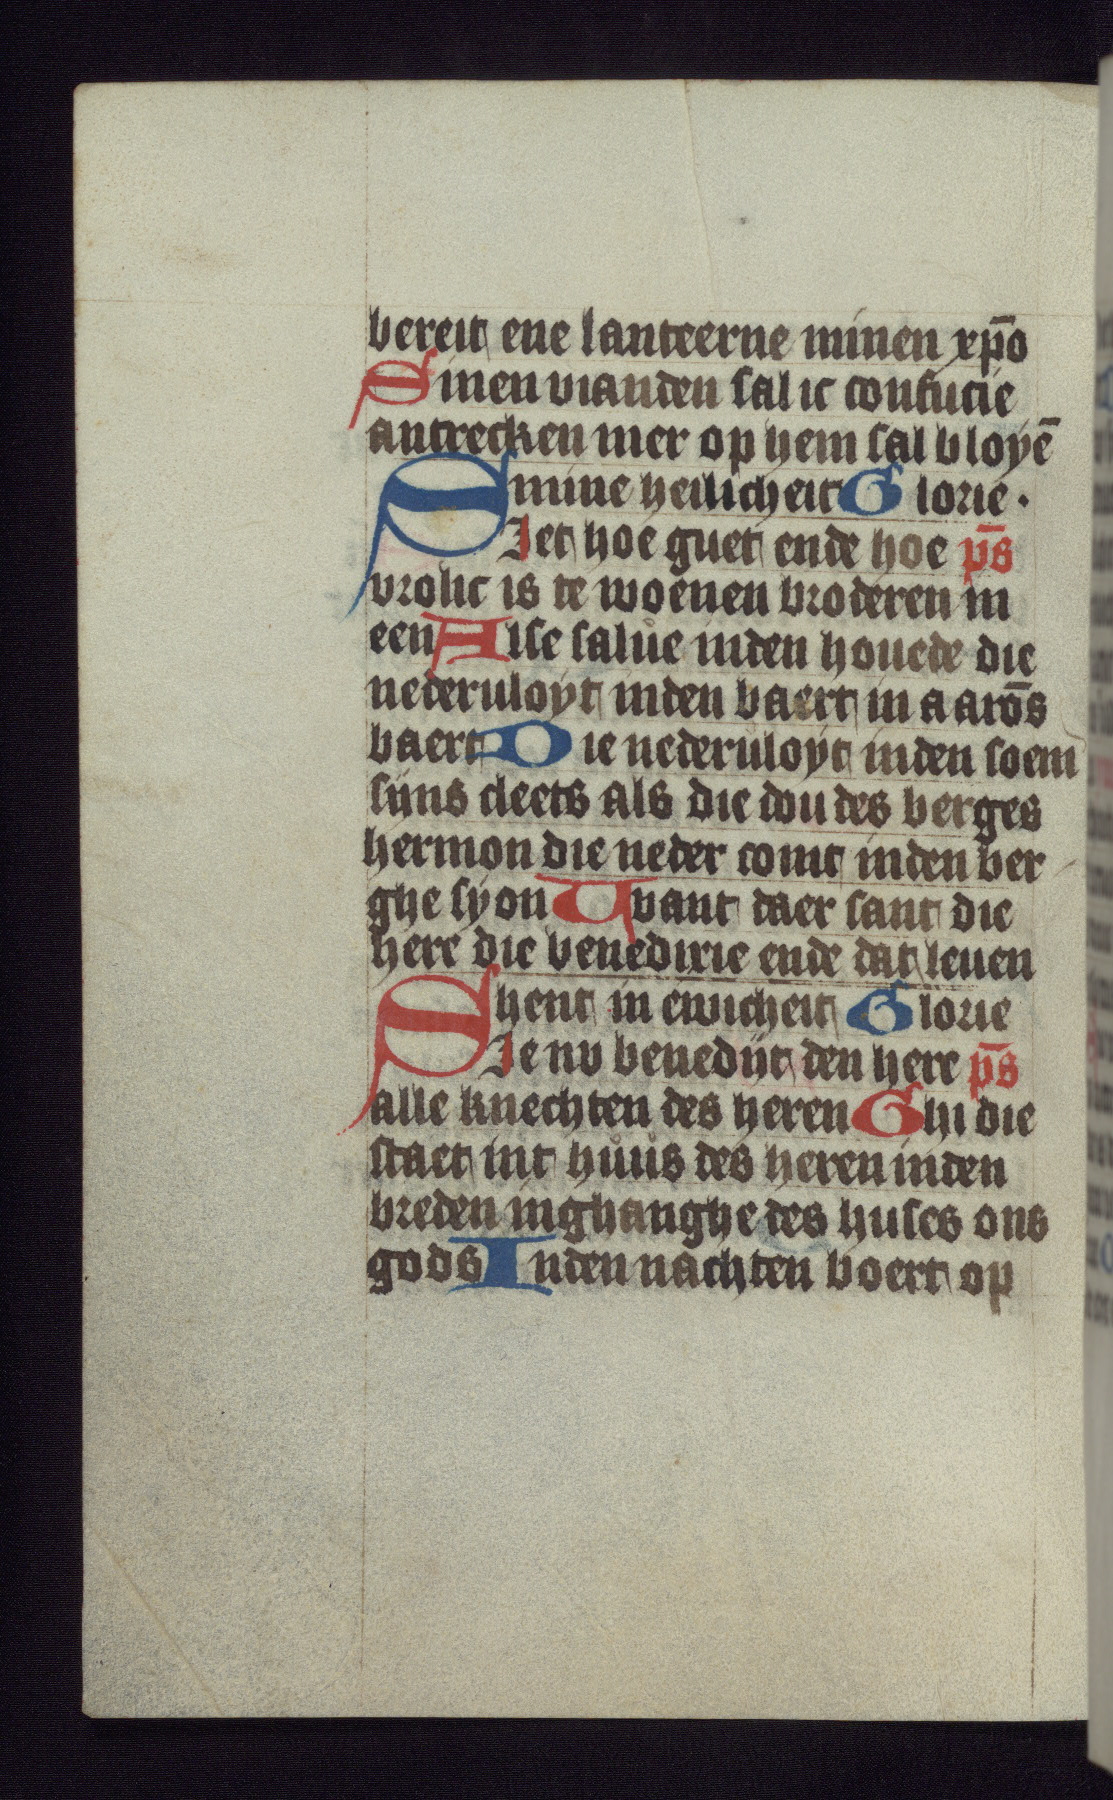 bereit ene lanteerne minen xp̄o
Sinen vianden sal ic confucie
antrecken mer op hem sal bloyē
mine heilicheit Glorie.
SIet hoe guet ende hoe p̄s
vrolic is te woenen broderen in
een Alse salue inden houede die
nederuloyt inden baert in aarōs
baert Die nederuloyt inden soem
sijns cleets als die dou des berges
hermon die neder comt inden ber
ghe syon Want daer sant die
here die benedixie ende dat leuen
hent in ewicheit Glorie
SIe nv benedijt den here p̄s
alle knechten des heren Ghi die
staet int huus des heren inden
breden inghanghe des huses ons
gods Inden nachten boert op